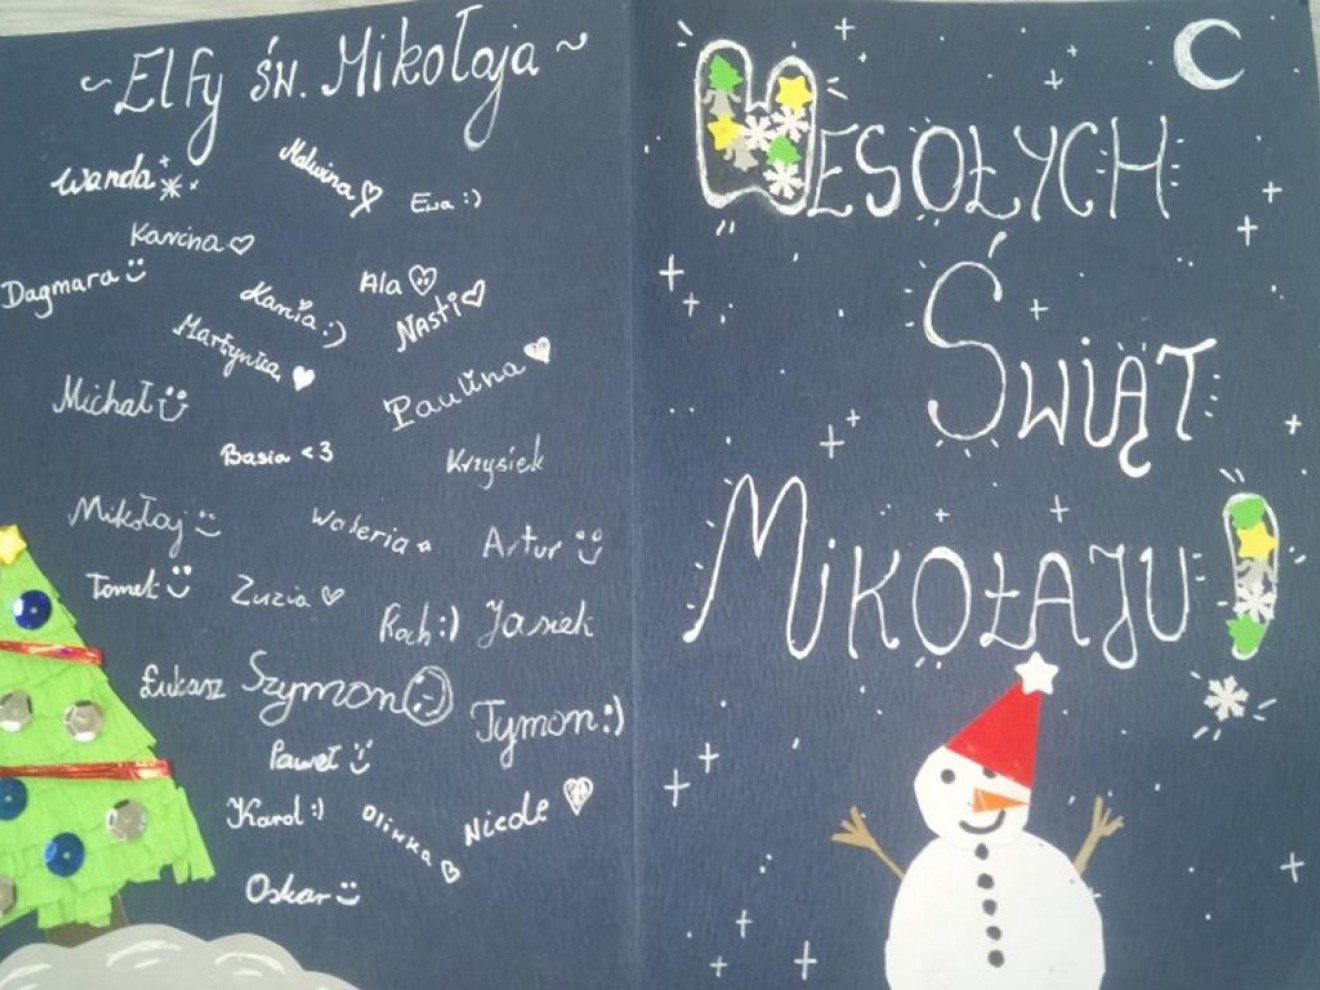 ~ Elfy św. Mikołaja ~
Wanda
Malwina ♡
Ewa :)
Karina ♡
Dagmara
Ala
Hania :)
Nasti ♡
Martynka ♥
Paulina ♥
Michał
Basia <3
Krzysiek
Mikołaj
Waleria
Artur
Tomek
Zuzia ♡
Roch :)
Jasiek
Łukasz
Szymon
Tymon :)
Paweł
Karol :)
Oliwka ♡
Nicole ♡
Oskar
WESOŁYCH
ŚWIĄT
MIKOŁAJU!